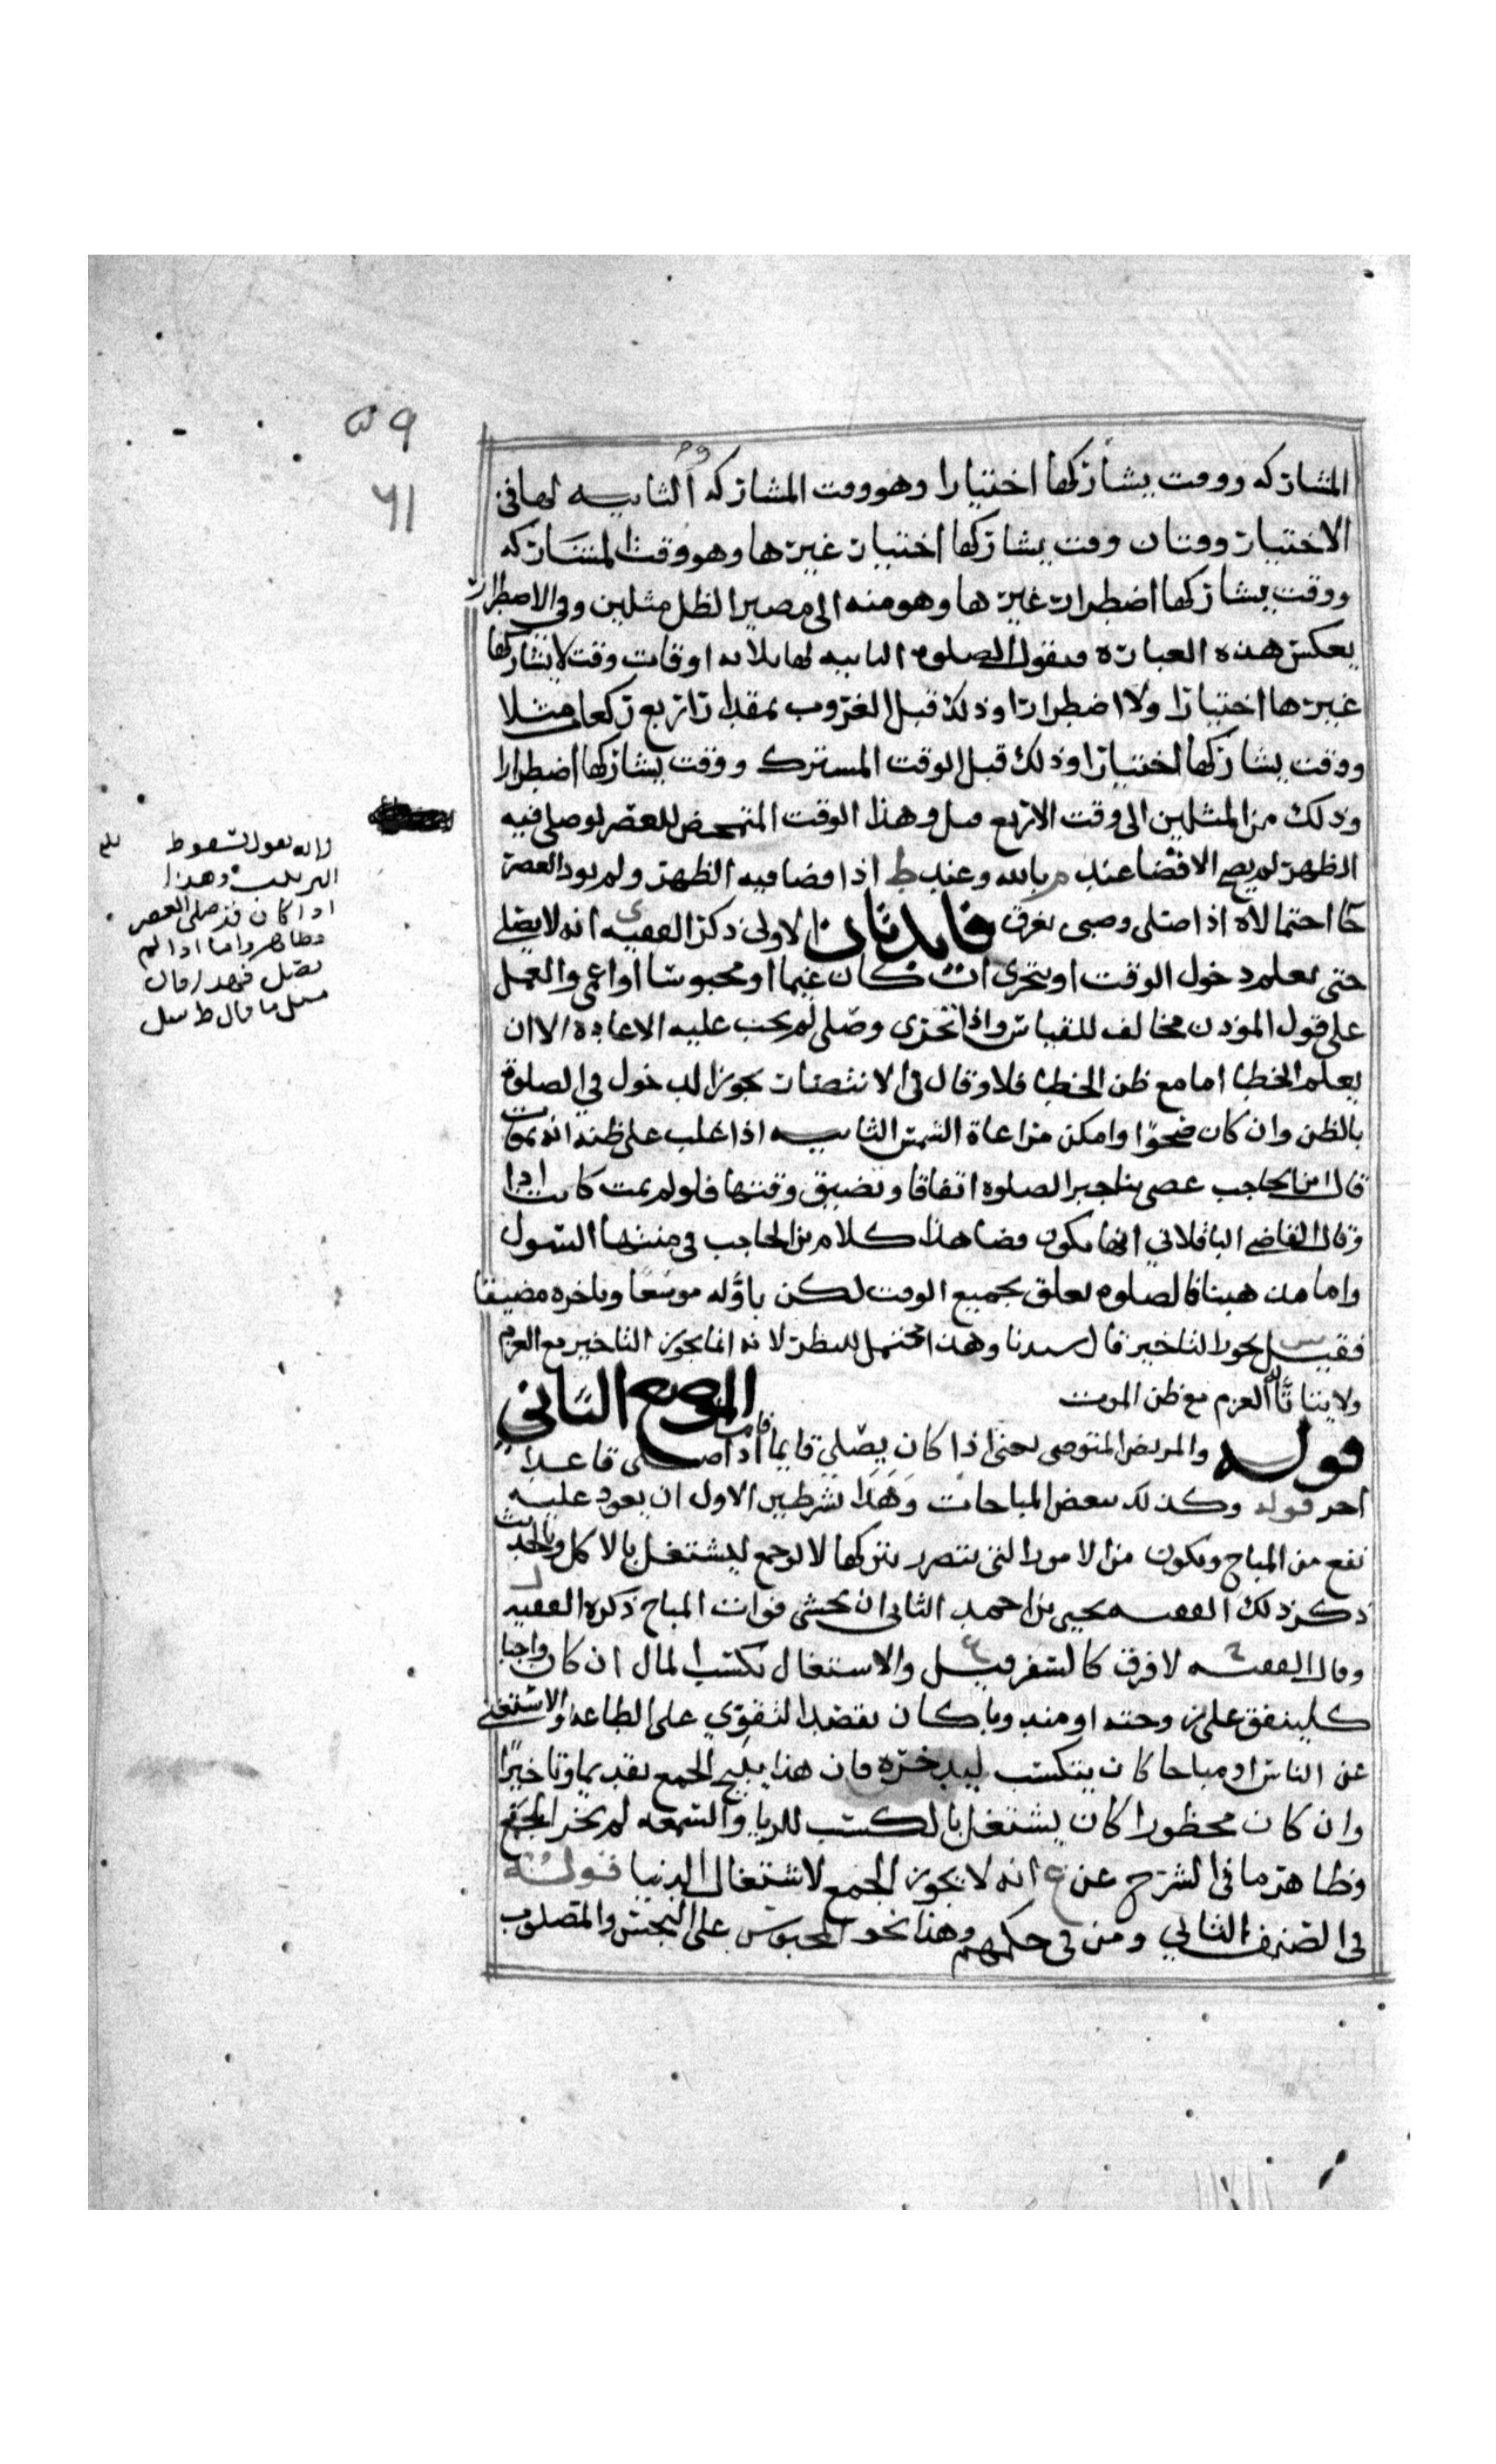 ٥٩
٦١
المشاركه ووقت يشاركها اختيارا وهو وقت المشاركه الثانيه لها في
الاختيار وقتان وقت يشاركها اختيار غيرها وهو وقت المشاركه
ووقت يشاركها اضطرار غيرها وهو منه الى مصير الظل مثلين وفي الاضطرار
يعكس هذه العباره فيقول الصلوه الثانيه لها ثلاثه اوقات وقت لا يشاركها
غيرها اختيارا ولا اضطرارا وذلك قبل الغروب بمقدار اربع ركعات مثلا
ووقت يشاركها اختيارا وذلك قبل الوقت المشترك ووقت يشاركها اضطرارا
وذلك من المثلين الى وقت الاربع قيل وهذا الوقت المتمحض للعصر لو صلى فيه
الظهر لم يصح الا قضا عند م بالله وعند ط اذا قضا فيه الظهر ولم يود العصر
كا احتمالان اذا صلى وصبى بغرق فايدتان الاولى ذكر الفقيه ي انه لا يصلي
حتى يعلم دخول الوقت او يتحرى ان كان غيما او محبوسا او اعمى والعمل
على قول الموذن مخالف للقياس واذا تحرى وصلى لم يجب عليه الاعاده الا ان
يعلم الخطا اما مع ظن الخطا فلا وقال في الانتصار يجوز الدخول في الصلوة
بالظن وان كان صحوا وامكن مراعاة الشمس الثانيه اذا غلب على ظنه انه يموت
قال ابن الحاجب عصى بتاخير الصلوه اتفاقا وتضيق وقتها فلو لم يمت كانت ادا
وقال القاضي الباقلاني انها تكون قضا هذا كلام بن الحاجب في منتهى السول
واما مذهبنا فالصلوه تعلق بجميع الوقت لكن باوله موسعا وباخره مضيقا
فقيل يجوز التاخير قال سيدنا وهذا محتمل للنظر لانه انما يجوز التاخير مع العزم
ولا يتاتا له العزم مع ظن الموت الموضع الثاني
قوله والمريض المتوضي نحو اذا كان يصلي قايما فاذا صلى قاعدا
اخر قوله وكذلك بعض المباحات وهذا بشرطين الاول ان يعود عليه
نفع من المباح ويكون من الامور التي يتضرر بتركها لا لو جمع ليشتغل بالاكل والحديث
ذكر ذلك الفقيه يحيى بن احمد الثاني ان يخشى فوات المباح ذكره الفقيه ل
وقال الفقيه ح لا فرق كالسفر قيل ع والاشتغال بكسب المال ان كان واجبا
كلينفق على زوجته او مندوبا كان يقصد التقوي على الطاعه والاستغنى
عن الناس او مباحا كان يتكسب ليدخره فان هذا يبيح الجمع تقديما وتاخيرا
وان كان محظورا كان يشتغل بالكسب للريا والسمعه لم يجز الجمع
وظاهر ما في الشرح عن ع انه لا يجوز الجمع لاشتغال الدنيا قوله
في الصنف الثاني ومن في حكمهم وهذا نحو المحبوس على النجس والمصلوب
لانه يقول بسقوط
الترتيب وهذا
اذا كان قد صلى العصر
فظاهر واما اذا لم
يصل فهذا قال
مثل ما قال ط